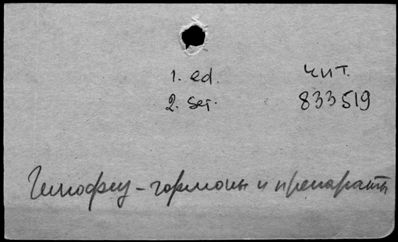 1. ed. чит.
2. Ser. 833519
Гипофиз - гормоны и препараты